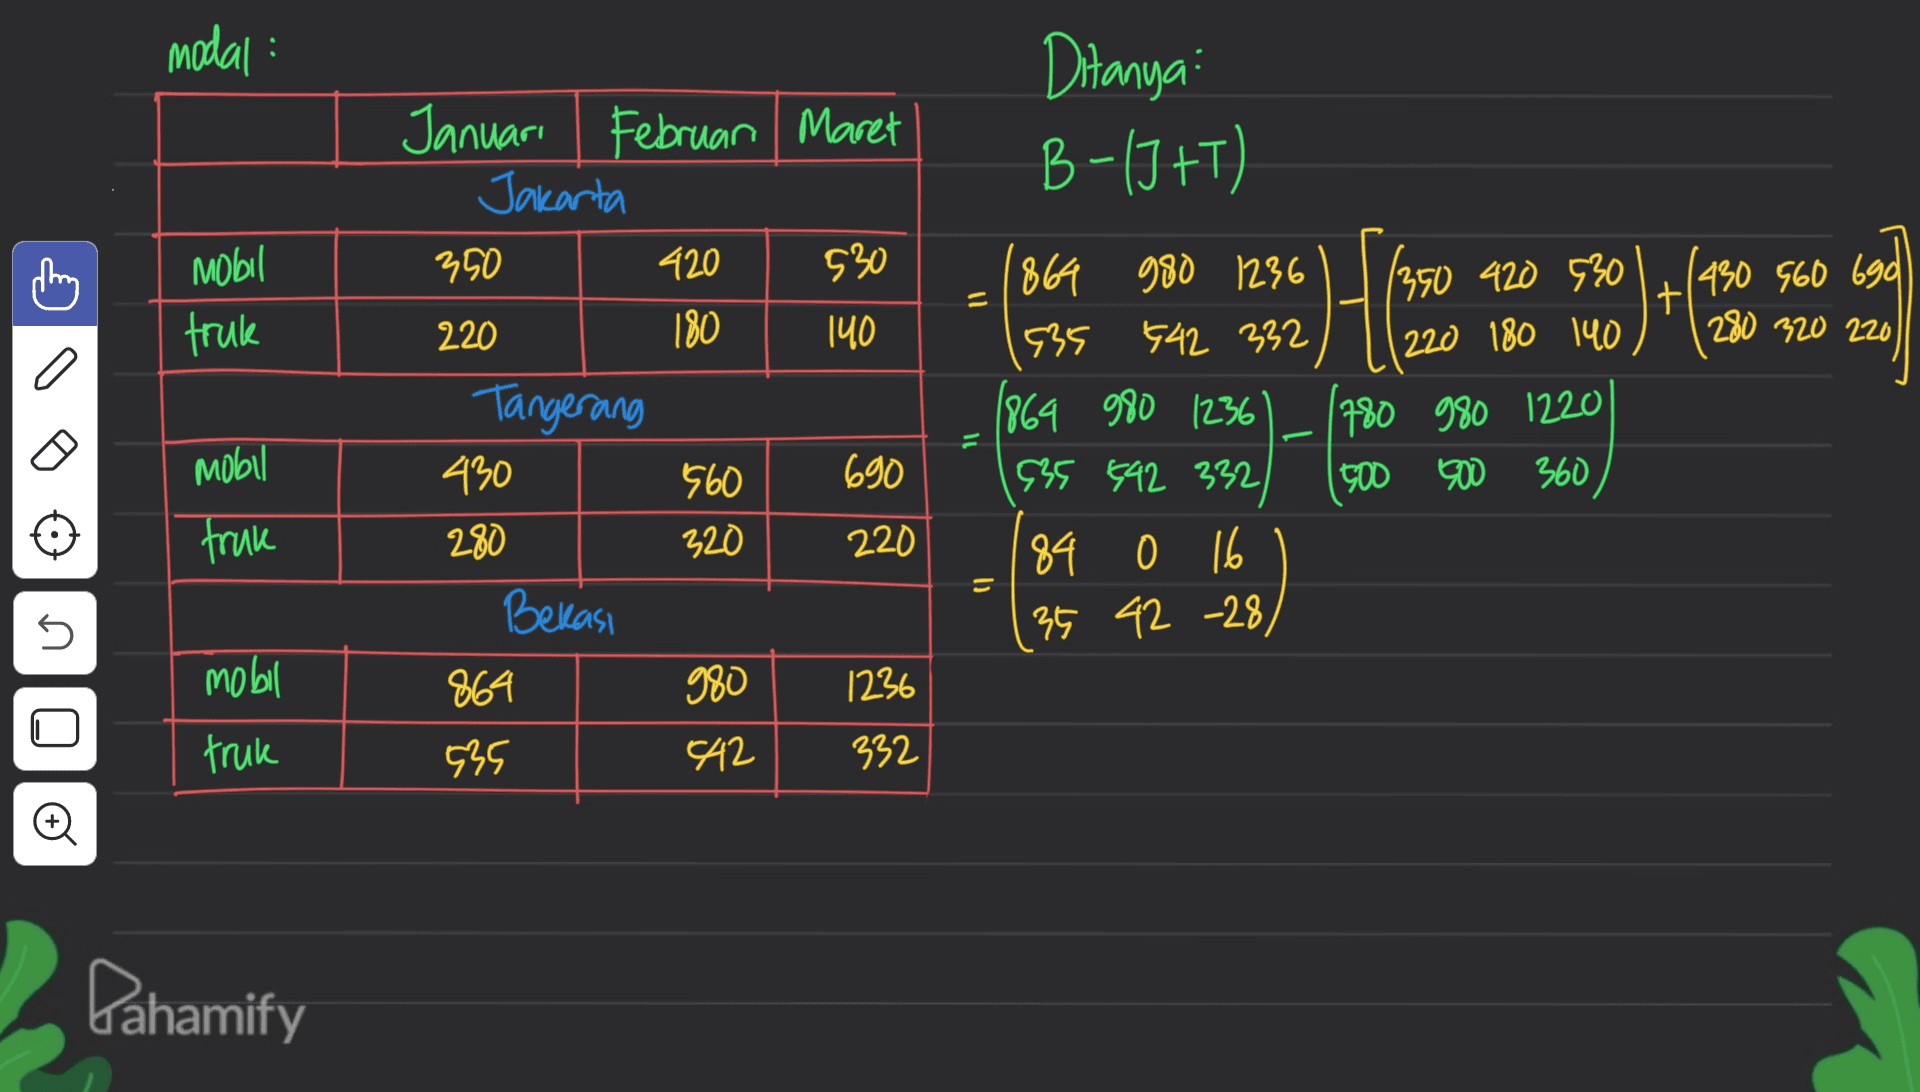 modal :
Januari Februari Maret
Jakarta
mobil 350 420 530
truk 220 180 140
Tangerang
mobil 430 560 690
truk 280 320 220
Bekasi
mobil 864 980 1236
truk 535 542 332
Ditanya:
B - (J + T)
= (864 980 1236) - [(350 420 530) + (430 560 690)]
(535 542 332) (220 180 140) (280 320 220)
= (864 980 1236) - (780 980 1220)
(535 542 332) (500 500 360)
= (84 0 16)
(35 42 -28)
Pahamify